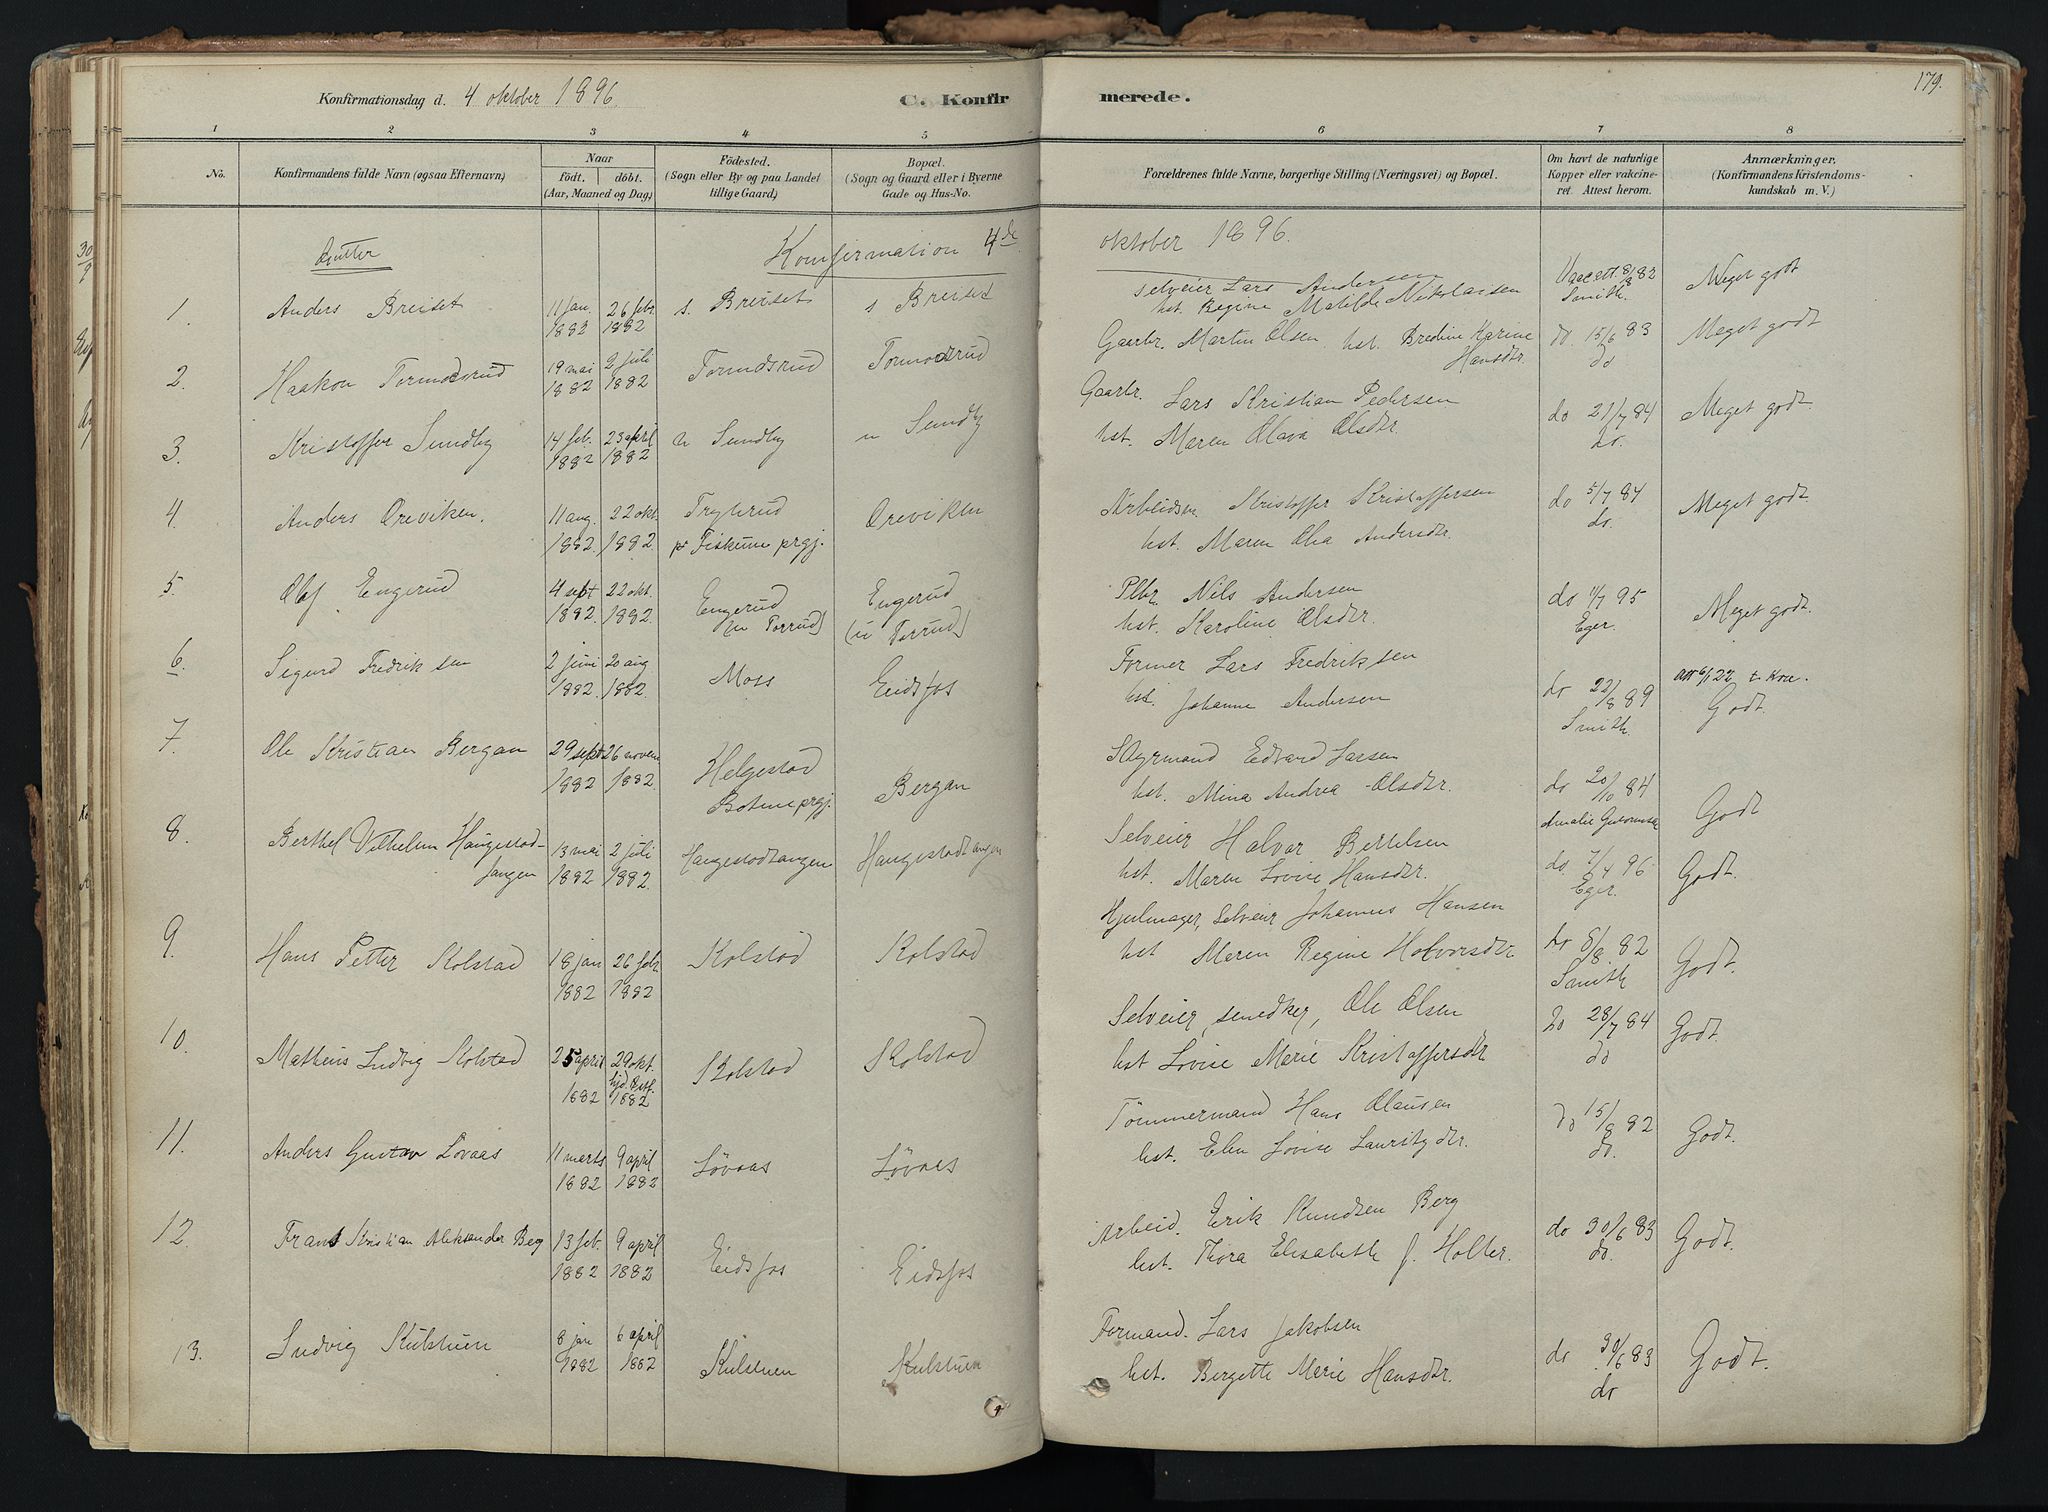 Konfirmationsdag d. 4 oktober 1896.
C. Konfirmerede.
179.
1 2 3 4 5 6 7 8
No.
Konfirmandens fulde Navn (ogsaa Efternavn)
Naar
födt. döbt.
(Aar, Maaned og Dag)
Födested.
(Sogn eller By og paa Landet
tillige Gaard)
Bopæl.
(Sogn og Gaard eller i Byerne
Gade og Hus-No.
Forældrenes fulde Navne, borgerlige Stilling (Næringsvei) og Bopæl.
Om havt de naturlige
Kopper eller vakcine-
ret. Attest herom.
Anmærkninger.
(Konfirmandens Kristendoms-
kundskab m. V.)
Gutter
Konfirmation 4de oktober 1896.
1. Anders Breiset 11 jan. 1882 26 febr. 1882 s. Breiset s Breiset
Selveier Lars Andersen
hst. Regine Matilde Nikolaisen
Vacc att. 8/8 82 Smith. Meget godt
2. Haakon Tormodsrud 19 mai 1882 2 juli 1882 Tormodsrud Tormodsrud
Gaarbr. Martin Olsen hst. Bredine Karine
Hansdtr.
do. 15/6 83 do Meget godt
3. Kristoffer Sundby 14 feb. 1882 23 april 1882 n Sundby n Sundby
Gaarbr. Lars Kristian Pedersen
hst. Maren Olava Olsdtr.
do 21/7 84 do. Meget godt.
4. Anders Oreviken. 11 aug. 1882. 22 okt. 1882. Trylerud
pr Fiskum prgj. Oreviken
Arbeidsm. Kristoffer Kristoffersen
hst. Maren Olea Andersdtr.
do 5/7 84 do. Meget godt
5. Olaf Engerud 4 sept 1882. 22 okt. 1882. Engerud
(u Torrud) Engerud
(u Torrud)
Plbr. Nils Andersen
hst. Karoline Olsdtr.
do 4/7 95 Eger. Meget godt.
6. Sigurd Fredriksen 2 juni 1882. 20 aug 1882. Moss Eidsfos
Former Lars Fredriksen
hst. Johanne Andersen
do 22/8 89 Smith
att 6/1 22 t. Kra.
Godt.
7. Ole Kristian Bergan 29 sept 1882 26 novem 1882 Helgestad
Botne prgj. Bergan
Styrmand Edvard Larsen
hst. Mina Andrea Olsdtr.
do 20/10 84 Amalie Godt
8. Berthel Vilhelm Haugestad-
tangen 13 mai 1882 2 juli 1882. Haugestadtangen Haugestadtangen
Selveier Halvor Bertelsen
hst. Maren Lovise Hansdtr.
do. 7/4 96 Eger. Godt.
9. Hans Petter Kolstad 18 jan 1882 26 febr 1882 Kolstad Kolstad
Hjulmager, Selveier Johannes Hansen
hst Maren Regine Halvorsdtr
do 8/8 82 Smith Godt.
10. Matheus Ludvig Kolstad 25 april 1882 29 okt. 1882 Kolstad Kolstad
Selveier, snedker, Ole Olsen
hst Lovise Marie Kristoffersdtr
do 28/7 84 do Godt.
11. Anders Gustav Lövaas 11 marts 1882 9 april 1882 Lövaas Lövaas
Tömmermand Hans Olausen
hst. Elen Lovise Lauritzdtr.
do 15/8 82 do. Godt.
12. Frans Kristian Aleksander Berg 13 feb. 1882 9 april 1882 Eidsfos Eidsfos
Arbeid. Erik Knudsen Berg
hst. Thora Elisabeth f. Holter.
do 30/6 83 do. Godt.
13. Ludvig Kulstuen 8 jan 1882 6 april 1882 Kulstuen Kulstuen
Formand. Lars Jakobsen
hst. Bergette Marie Hansdtr.
do 30/6 83 do Godt.